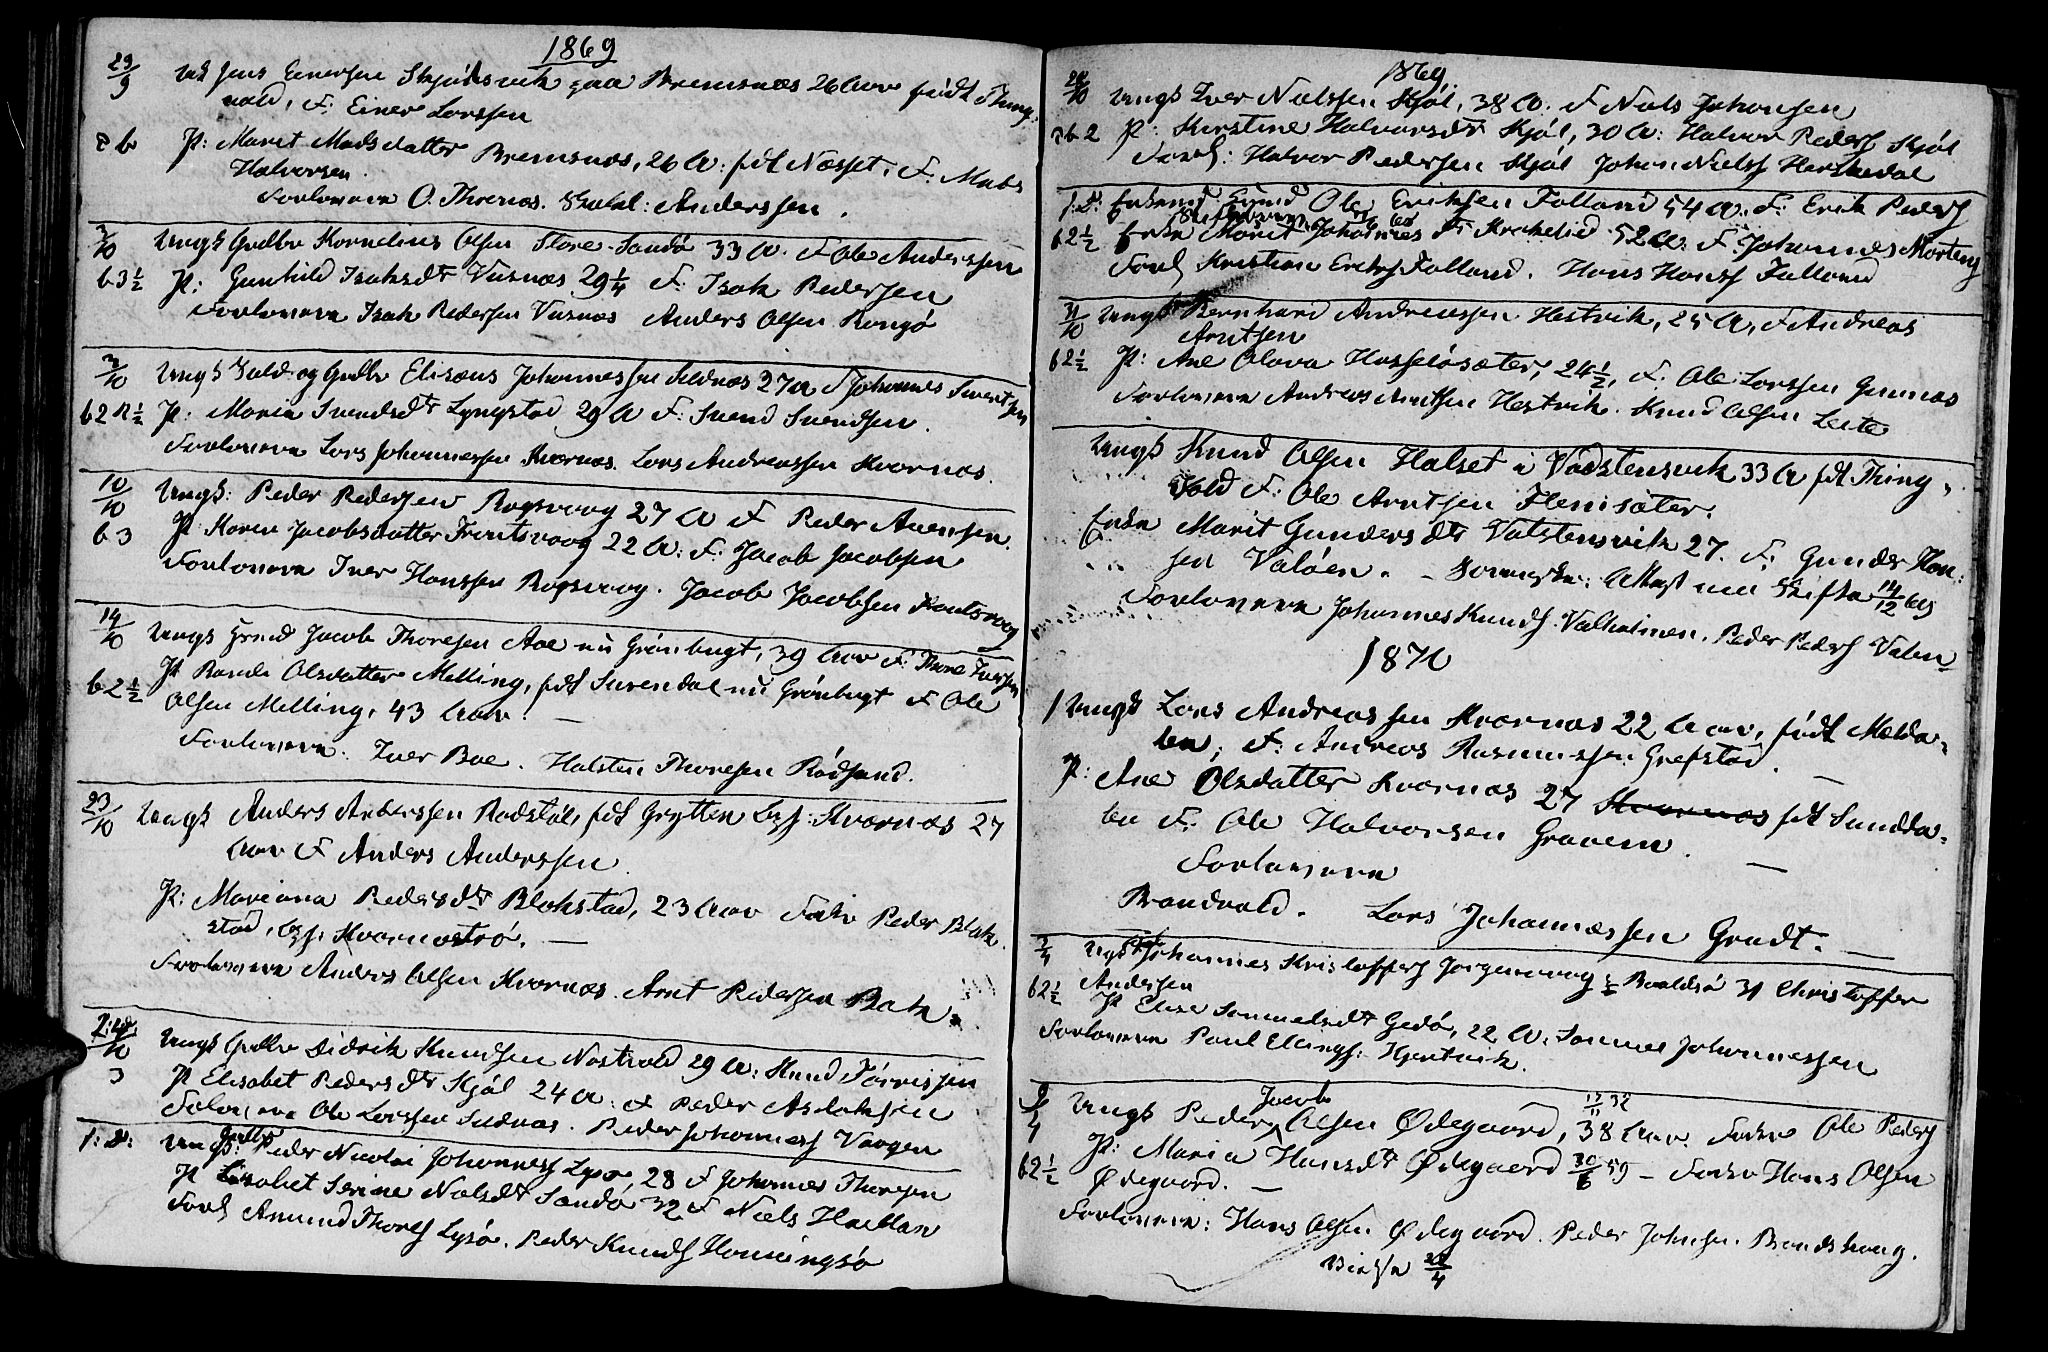 1869
29/9 Jens Einersen Skjølsvik paa Bremsnæs 26 Aar født Thing-
vold, F. Einer Larssen
P: Marit Madsdatter Bremsnæs, 26 A: fdt Næsset, F. Mads
Halvorsen.
Forlovere O. Thornæs. Anderssen.
3/10 Ungk Gaardbr Kornelius Olsen Store-Sandø 33 A. F Ole Anderssen
6 3½ P: Gunhild Isaksdtr Visnæs 29¼ F: Isak Pedersen
Forlovere Isak Pedersen Visnæs Anders Olsen Rangø
3/10 Ungk Sold og Gaardbr Elisæus Johannessen Sildnæs 27 A F Johannes Sivertsen
6 2½ P: Maria Svendsdtr Lyngstad 29 A F: Svend Svendsen.
Forlovere Lars Johannessen Kvernæs. Lars Andreassen Kvarnæs.
10/10 Ungk: Peder Pedersen Ropsvaag 27 A F Peder Arensen.
6 3 P. Karen Jacobsdatter Frontsvaag 22 A: F: Jacob Jacobsen
Forlovere Iver Hanssen Ropsvaag. Jacob Jacobsen Frontsvaag
14/10 Ungk Jacob Thoresen Aae nu Grønbugt, 39 Aar F: Thore Iversen
6 2½ P. Olsdatter Melling, fdt Surendal nu Grønbugt F Ole
Olsen Melling, 43 Aar. —
Forlovere. Iver Boe. Halsten Thoresen Rødsand.
23/10 Ungk Anders Anderssen Rødstøl, fdt Grytten Kvarnæs 27
Aar F Anders Anderssen.
P: Mariana Pedersdtr Blakstad, 23 Aar Fader Peder Blak-
stad, Kvarnæstrø. —
Forlovere Anders Olsen Kvarnæs. Arnt Pedersen Bak.
/10 Ungk Gaardbr Didrik Knudsen Nastvold 29 A: Knud
3 P Elisabet Pedersdtr Skjøl 24 A: F Peder Aslaksen
Forlovere Ole Larssen Sildnæs. Peder Johanness Vaagen
1: D: Ungk: Peder Nicolai Johanness Lysø, 28 F Johannes Thoresen
P Elisabet Serine Nielsdtr Sandø 32 F Niels
Forl Amund Thores Lysø. Peder Knuds Honningsø
1869.
28/10 Ungk Iver Nielssen Skjøl, 38 A. F Niels Johansen
6 2 P: Kirstine Halvorsdtr Skjøl, 30 A: Halvor Peders Skjøl
Forl: Halvor Pedersen Skjøl Johan Niels Herskedal
1: D: Enkemd Ole Eriksen Folland 54 A. F: Erik Peders
6 2½ Enke Marit Johannesdtr Krekelid 52 A. F: Johannes Mortens
Forl Kristian Eriks Folland. Hans Hans Folland
31/10 Ungk Bernhard Andreassen Hestvik, 25 A, F Andreas
Arntsen
6 2½ P: Ane Olava Hasseløsæter, 24½, F: Ole Larssen Gunnæs
Forlovere Andreas Arntsen Hestvik. Knud Olsen Leite
Ungk Knud Olsen Halset i Vadstensvik 33 A fdt Thing-
vold F: Ole Arntsen Flemsæter.
Enke Marit Gundersdtr Vatstensvik 27. F: Gunder Han-
sen Valøen. — Attest om Skifte 14/12 69
Forlovere Johannes Knuds. Valholmen. Peder Peders Valen
1870
1 Ungk Lars Andreassen Kvarnæs 22 Aar, født Melda-
len, F: Andreas Rasmussen Grefstad. —
P: Ane Olsdatter Kvarnæs 27 Kvarnæs fdt Sundda-
len F: Ole Halvorsen Gravem. —
Forlovere
Brandvold. Lars Johannessen Grødt. —
Ungk Johannes Kristoffers Jørgenvaag Roaldsø 31 Christoffer
6 2½ Andersen
P Elise Samuelsdtr Gedø, 22 A. Johannessen
Forlovere Paul Ellings: Hjertvik.
Jacob 17/11 32
Ungk Peder Olsen Ødegaard, 38 Aar. Fader Ole Peders
6 2½ P: Maria Hansdtr Ødegaard 30/6 59 — Fader Hans Olsen
Ødegaard. —
Forlovere: Hans Olsen Ødegaard. Peder Johnsen Brandshaug.
28/4